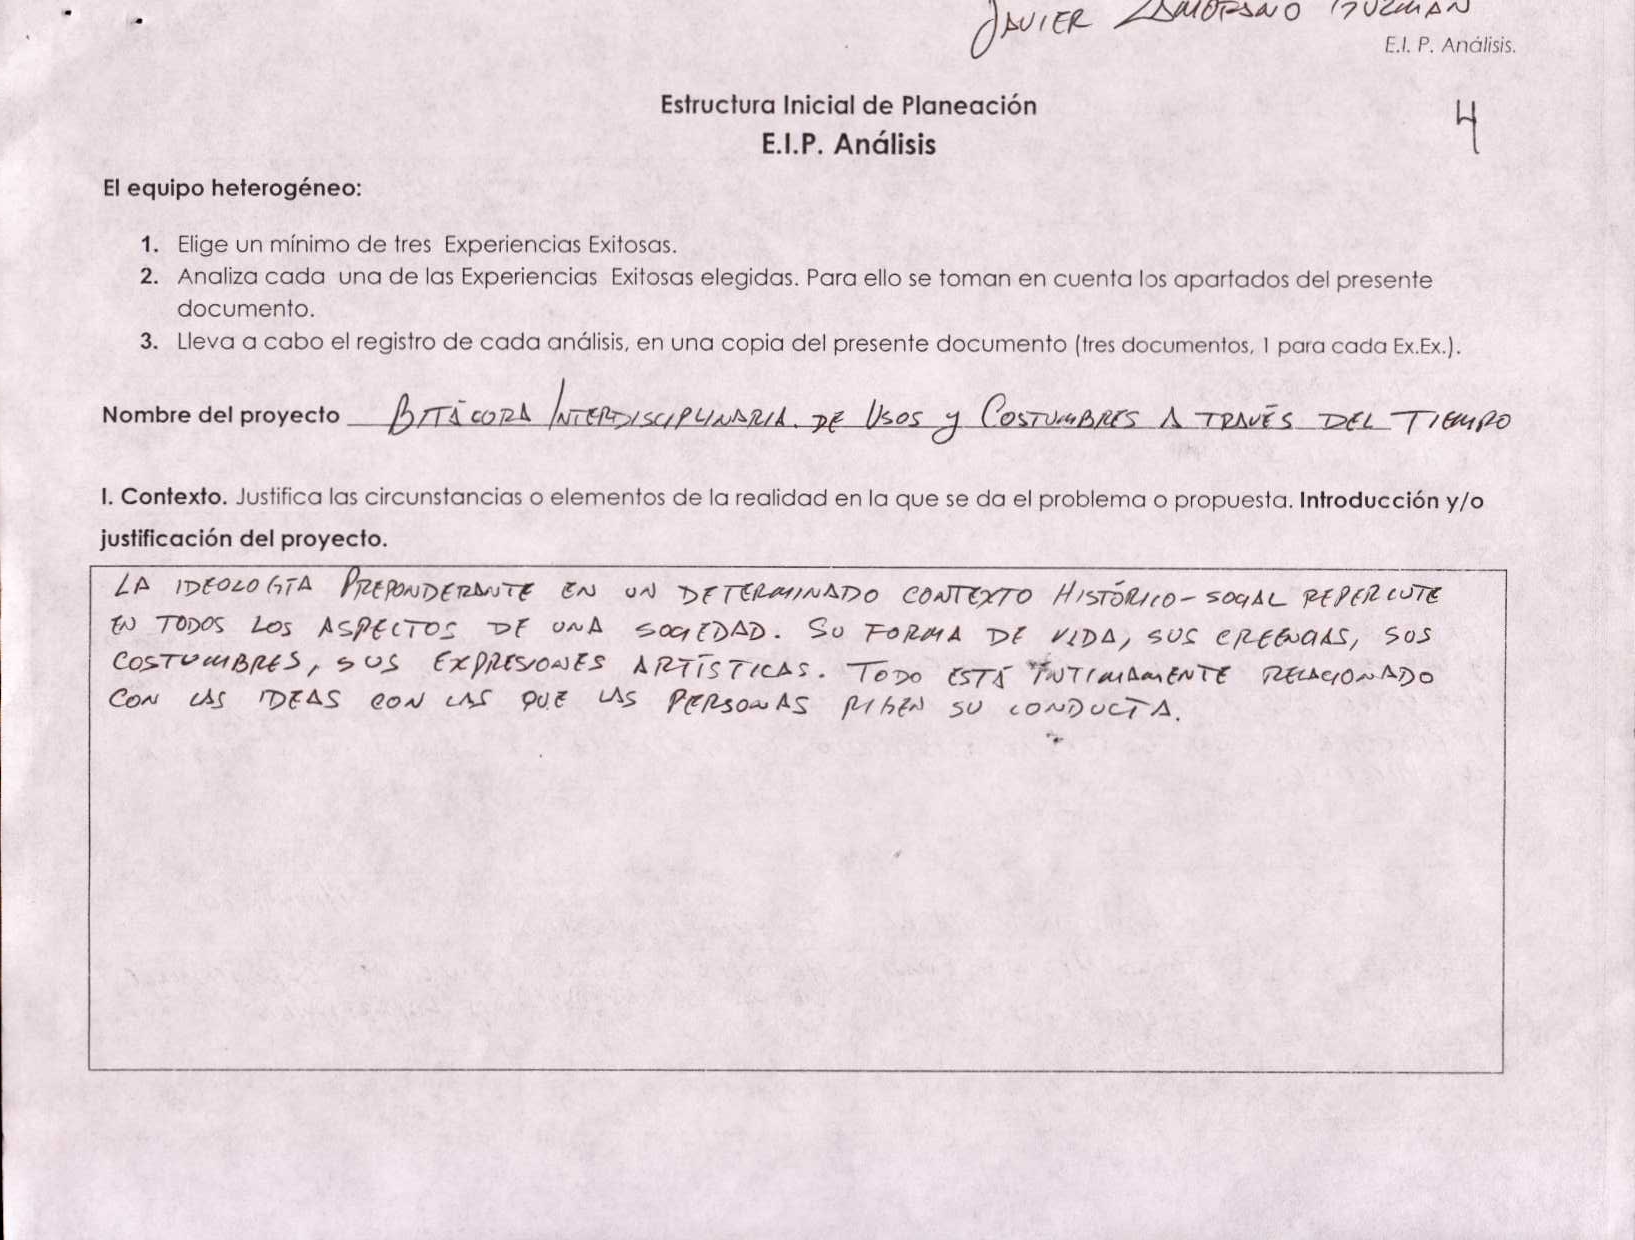 JAVIER ZAMORANO GUZMAN
E.I. P. Análisis.
Estructura Inicial de Planeación
4
E.I.P. Análisis
El equipo heterogéneo:
1. Elige un mínimo de tres Experiencias Exitosas.
2. Analiza cada una de las Experiencias Exitosas elegidas. Para ello se toman en cuenta los apartados del presente
documento.
3. Lleva a cabo el registro de cada análisis, en una copia del presente documento (tres documentos, 1 para cada Ex.Ex.).
Nombre del proyecto BITÁCORA INTERDISCIPLINARIA. DE USOS y COSTUMBRES A TRAVÉS DEL TIEMPO
I. Contexto. Justifica las circunstancias o elementos de la realidad en la que se da el problema o propuesta. Introducción y/o
justificación del proyecto.
LA IDEOLOGÍA PREPONDERANTE EN UN DETERMINADO CONTEXTO HISTÓRICO-SOCIAL REPERCUTE
EN TODOS LOS ASPECTOS DE UNA SOCIEDAD. SU FORMA DE VIDA, SUS CREENCIAS, SUS
COSTUMBRES, SUS EXPRESIONES ARTÍSTICAS. TODO ESTÁ INTIMAMENTE RELACIONADO
CON LAS IDEAS CON LAS QUE LAS PERSONAS RIGEN SU CONDUCTA.